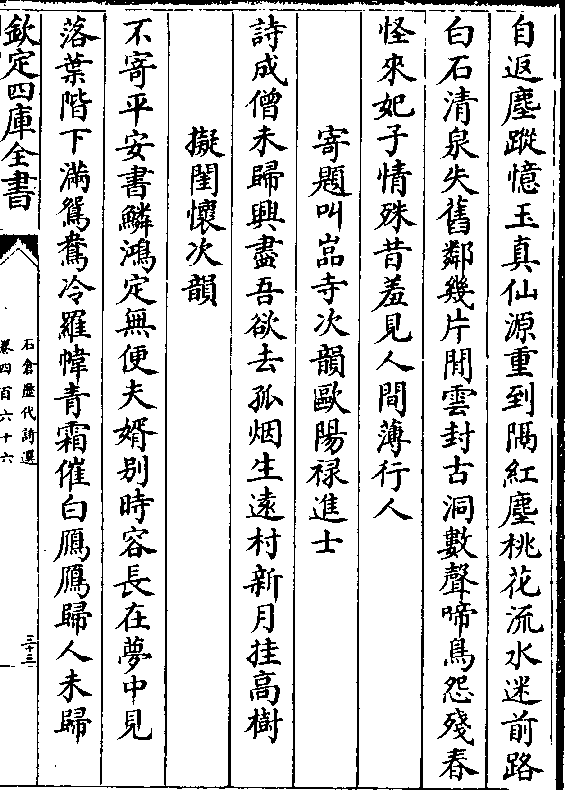 自返塵蹤憶玉真仙源重到隔紅塵桃花流水迷前路
白石清泉失舊鄰幾片閒雲封古洞數聲啼鳥怨殘春
怪來妃子情殊昔羞見人間薄行人
寄題叫嵓寺次韻歐陽祿進士
詩成僧未歸興盡吾欲去孤烟生遠村新月挂高樹
擬閨懷次韻
不寄平安書鱗鴻定無便夫婿别時容長在夢中見
落葉階下滿鴛鴦冷羅幃青霜催白鴈鴈歸人未歸
欽定四庫全書
石倉歷代詩選
卷四百六十六
三十三